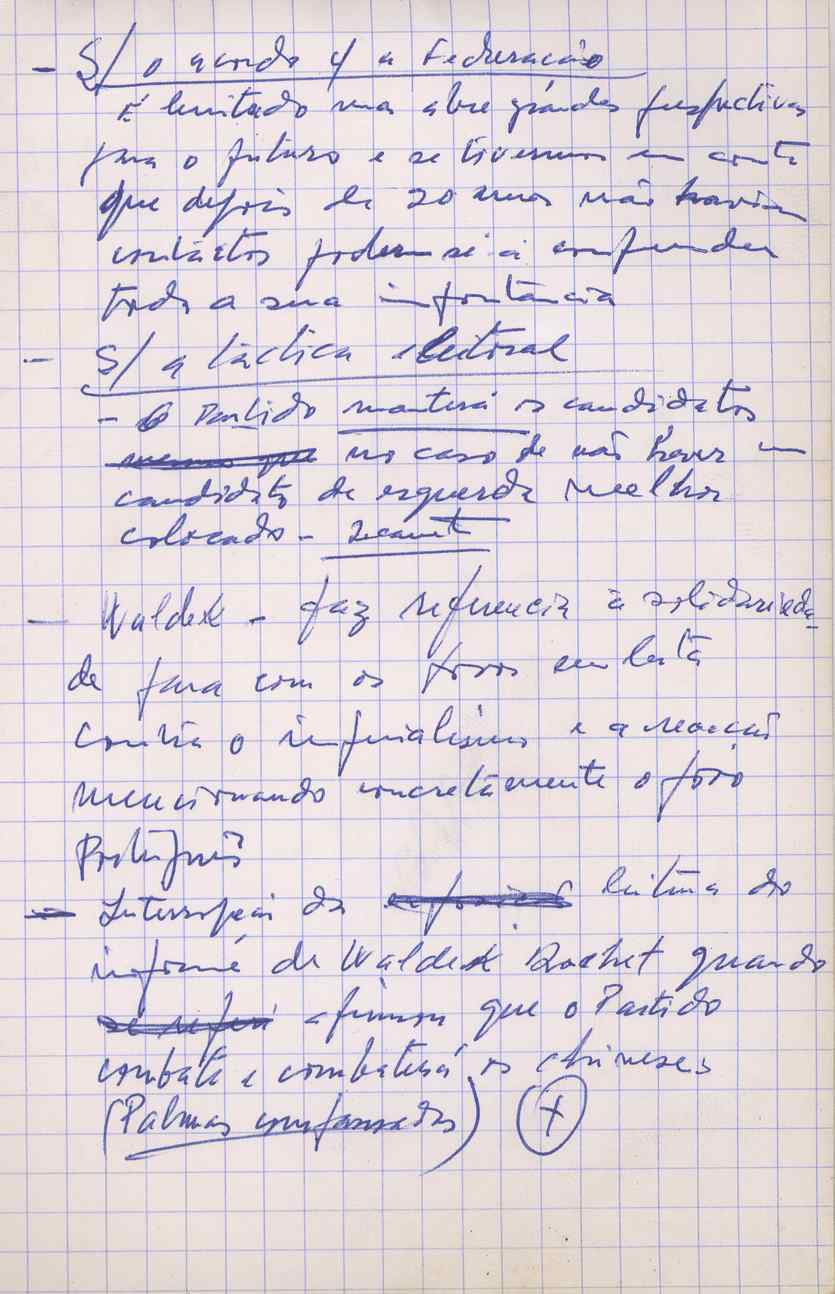 - S/ o acordo c/ a Federação
É limitado mas abre grandes perspectivas
para o futuro e se tivermos em conta
que depois de 20 anos não havia
contactos poderm-se-á compreender
toda a sua importância
- S/ a táctica eleitoral
- O Partido manterá os candidatos
mesmo que no caso de não haver um
candidato de esquerda melhor
colocado -
- Waldek - faz referencia à solidarieda-
de para com os povos em luta
contra o imperialismo e a reacção
mencionando concretamente o povo
Português
- Interrupção da leitura do
informe de Waldek Rochet quando
se referi afirmou que o Partido
combate e combaterá os chineses
(Palmas compassadas) +